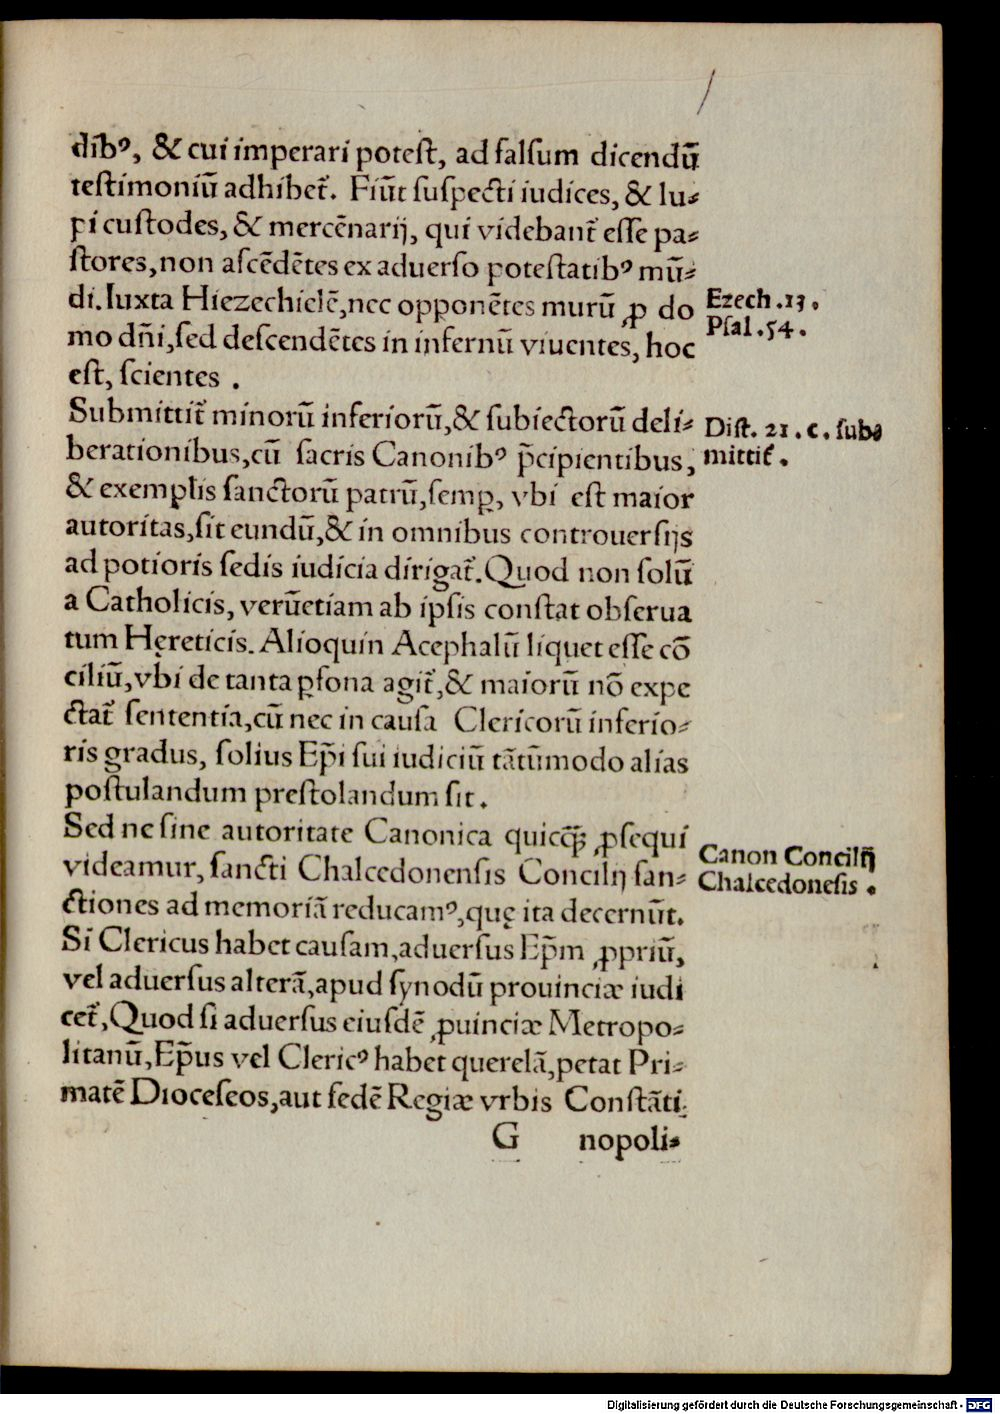 dib⁹, & cui imperari poteſt, ad falſum dicendū
teſtimoniū adhibet̃. Fiūt ſuſpecti iudices, & lu⸗
pi cuſtodes, & mercēnarij, qui videbant̃ eſſe pa⸗
ſtores, non aſcēdētes ex aduerſo poteſtatib⁹ mū⸗
di. Iuxta Hiezechielē, nec opponētes murū ꝓ do
mo dñi, ſed deſcendētes in infernū viuentes, hoc
eſt, ſcientes .
Ezech. 13.
Pſal. 54.
Submittit̃ minorū inferiorū, & ſubiectorū deli⸗
berationibus, cū ſacris Canonib⁹ p̄cipientibus,
& exemplis ſanctorū patrū, ſemꝑ, vbi eſt maior
autoritas, ſit eundū, & in omnibus controuerſijs
ad potioris ſedis iudicia dirigat̃. Quod non ſolū
a Catholicis, verūetiam ab ipſis conſtat obſerua
tum Hęreticis. Alioquin Acephalū liquet eſſe cō
ciliū, vbi de tanta ꝑſona agit̃, & maiorū nō expe
ctat̃ ſententia, cū nec in cauſa Clericorū inferio⸗
ris gradus, ſolius Ep̄i ſui iudiciū tātūmodo alias
poſtulandum preſtolandum ſit .
Diſt. 21. c. ſub⸗
mittit̃ .
Sed ne ſine autoritate Canonica quicq̄ꝫ ꝓſequi
videamur, ſancti Chalcedonenſis Concilij ſan⸗
ctiones ad memoriā reducam⁹, quę ita decernūt.
Si Clericus habet cauſam, aduerſus Ep̄m ꝓpriū,
vel aduerſus alterā, apud ſynodū prouinciæ iudi
cet̃, Quod ſi aduerſus eiuſdē ꝓuinciæ Metropo⸗
litanū, Ep̄us vel Cleric⁹ habet querelā, petat Pri⸗
matē Dioceſeos, aut ſedē Regiæ vrbis Conſtāti
Canon Concilij
Chalcedonēſis .
G nopoli⸗
Digitalisierung gefördert durch die Deutsche Forschungsgemeinschaft - DFG